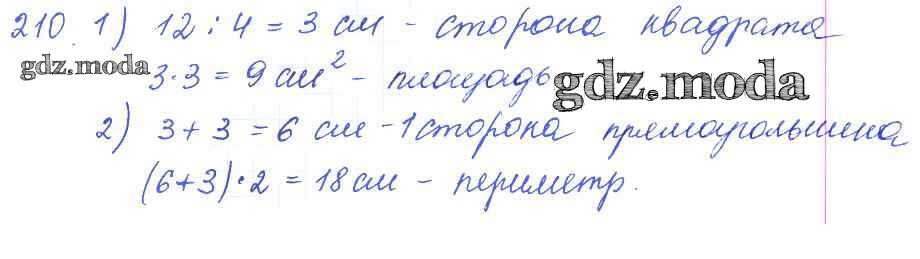 210. 1) 12 : 4 = 3 см - сторона квадрата
gdz.moda
3·3 = 9 см² - площадь
gdz.moda
2) 3 + 3 = 6 см - 1 сторона прямоугольника
(6+3)·2 = 18 см - периметр.